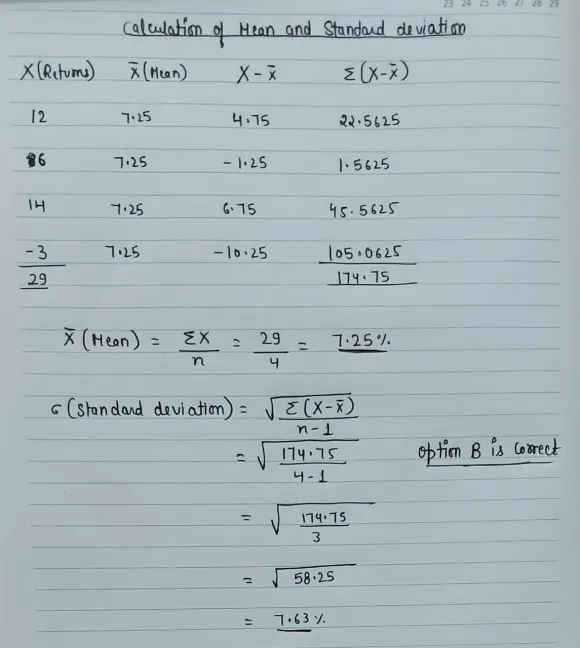 23 24 25 26 27 28 29
Calculation of Mean and Standard deviation
X (Returns) X̄ (Mean) X - x̄ Σ(X-x̄)
12 7.25 4.75 22.5625
6 7.25 -1.25 1.5625
14 7.25 6.75 45.5625
-3 7.25 -10.25 105.0625
29 174.75
X̄ (Mean) = ΣX/n = 29/4 = 7.25%
σ (Standard deviation) = √(Σ(X-x̄)/n-1)
= √(174.75/4-1) option B is correct
= √(174.75/3)
= √58.25
= 7.63%